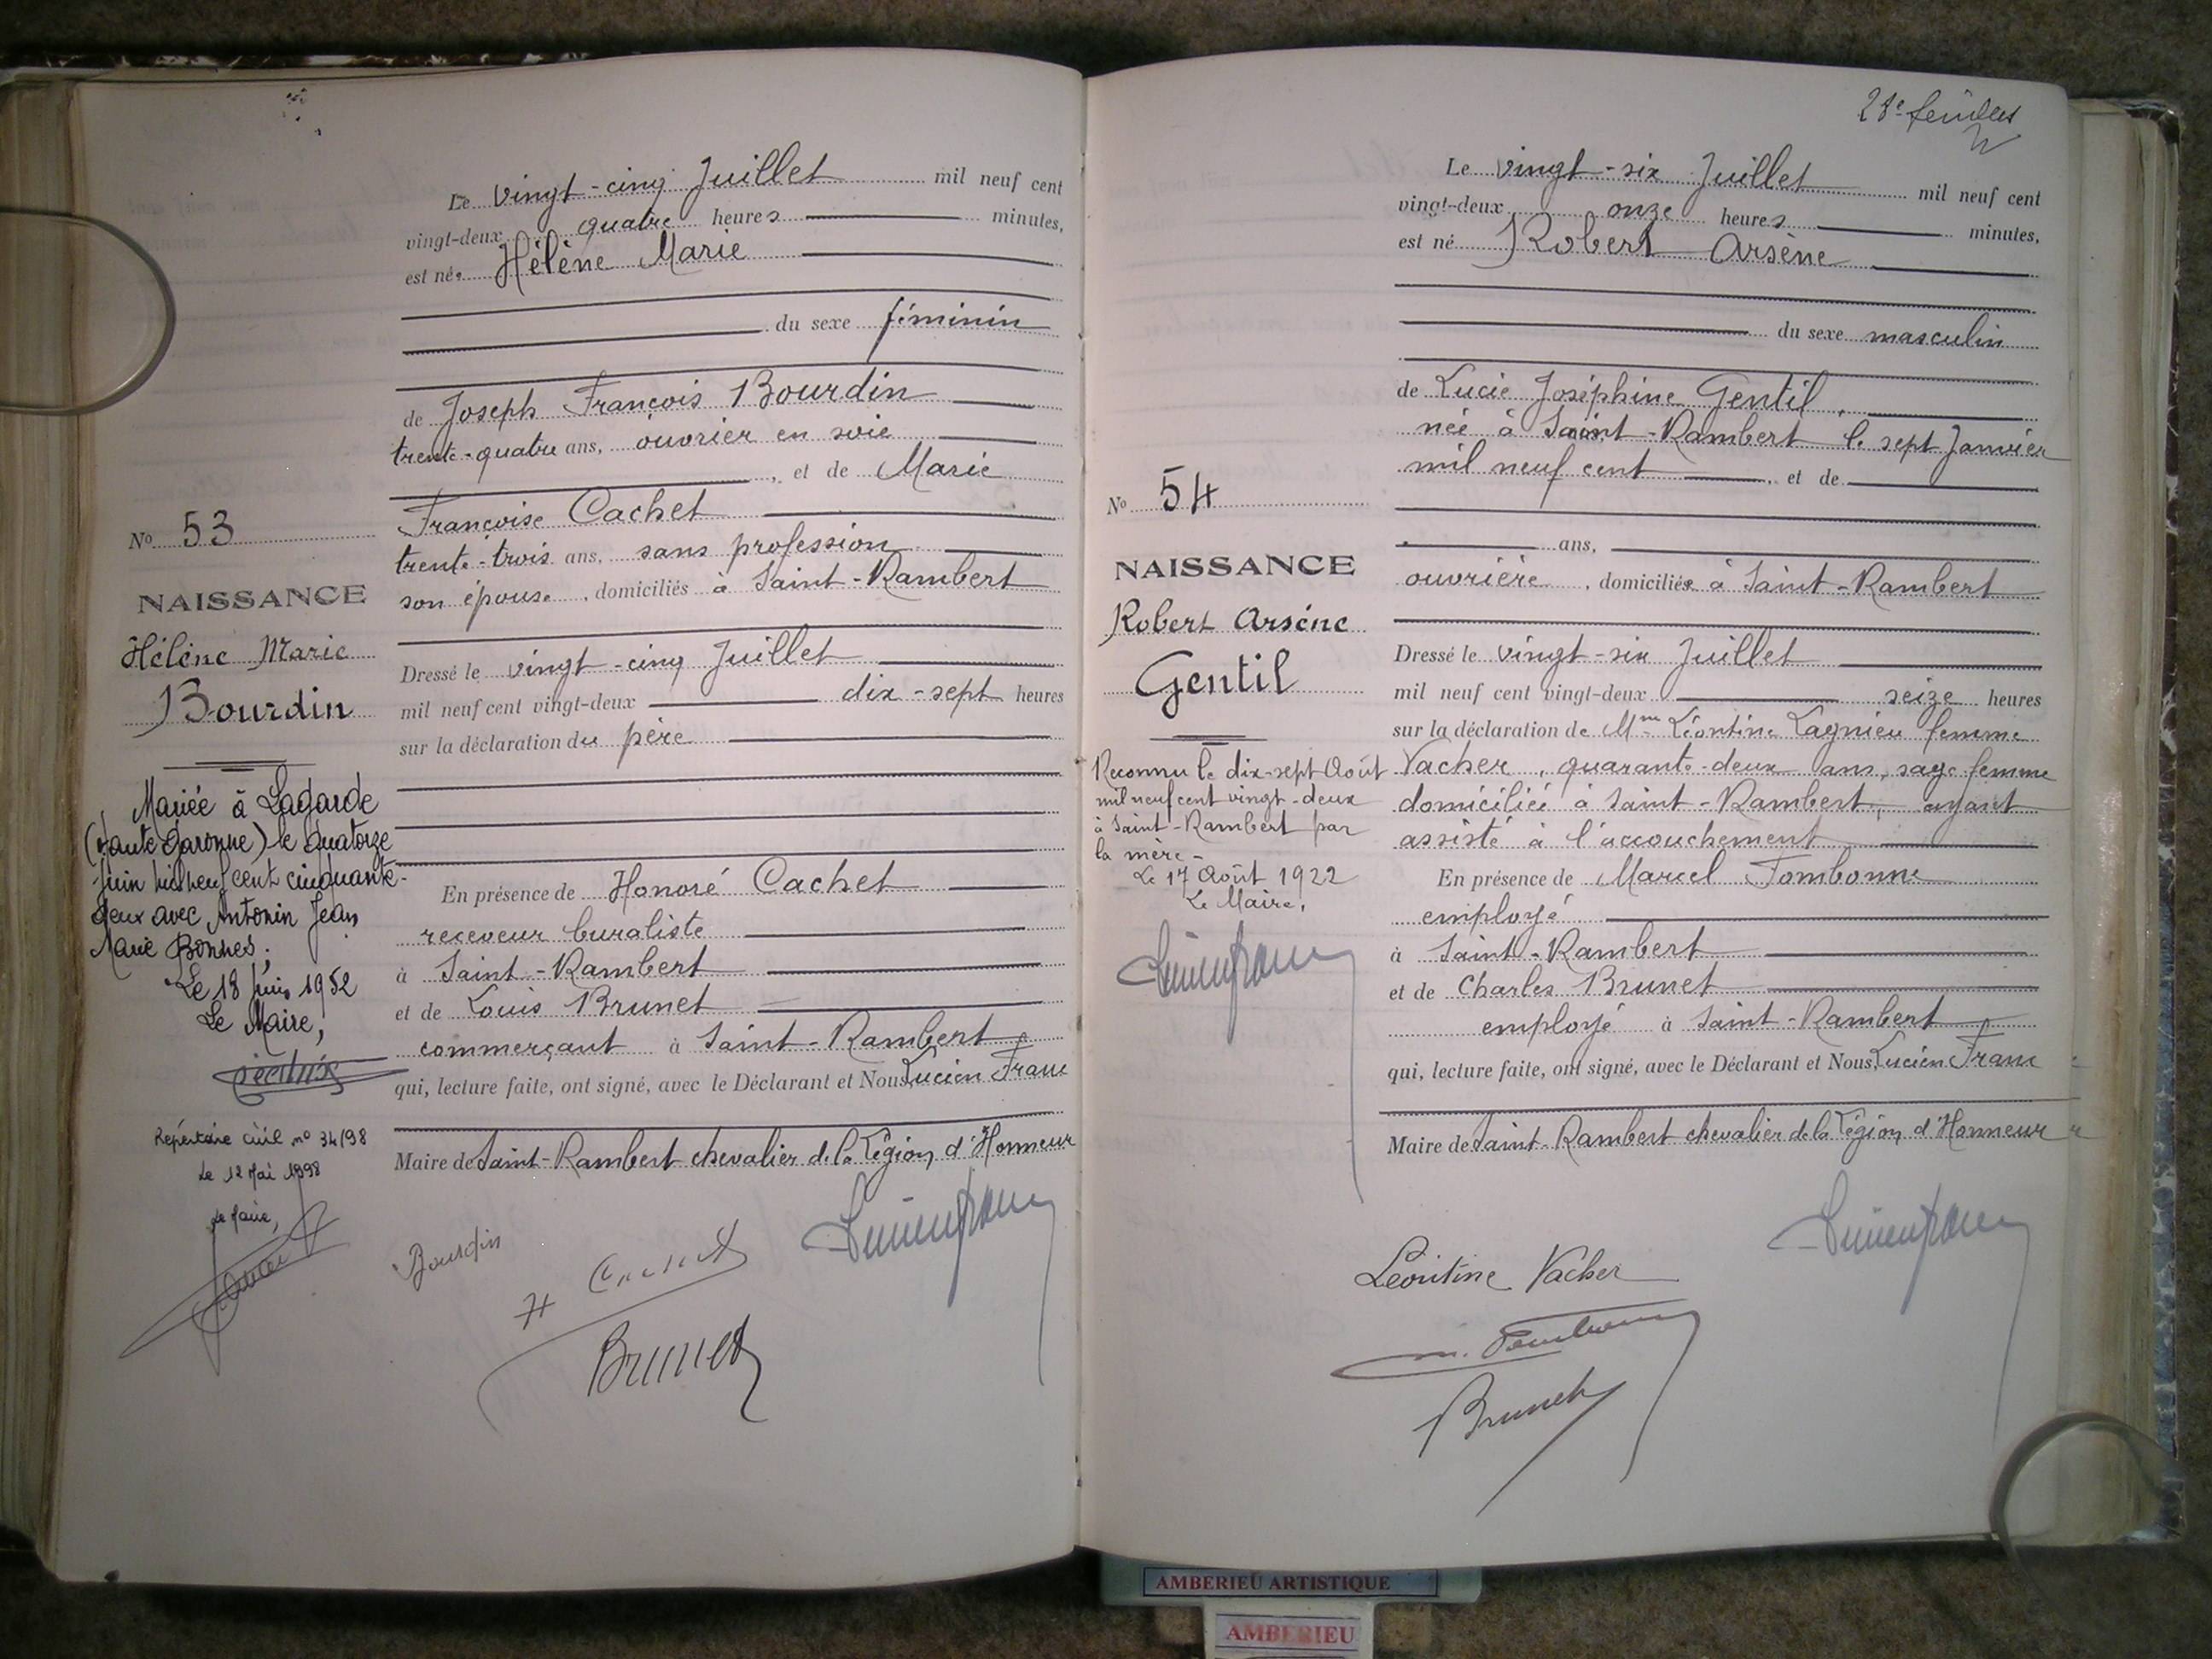 Le vingt-cinq Juillet mil neuf cent
vingt-deux quatre heures minutes,
est née Hélène Marie
du sexe féminin
de Joseph François Bourdin
trente-quatre ans, ouvrier en soie
, et de Marie
Françoise Cachet
trente-trois ans, sans profession
son épouse, domiciliés à Saint-Rambert
Dressé le vingt-cinq Juillet
mil neuf cent vingt-deux dix-sept heures
sur la déclaration du père
En présence de Honoré Cachet
receveur buraliste
à Saint-Rambert
et de Louis Brunet
commerçant à Saint-Rambert
qui, lecture faite, ont signé, avec le Déclarant et Nous, Lucien Franc
Maire de Saint-Rambert chevalier de la Légion d'Honneur
Bourdin
H Cachet
Brunet
No 53
NAISSANCE
Hélène Marie
Bourdin
Mariée à Lagarde
(Haute Garonne) le quatorze
juin mil neuf cent cinquante-
deux avec Antonin Jean
Marie Bonnes.
Le 18 juin 1952
Le Maire,
Répertoire civil no 34/98
Le 12 Mai 1998
Le Maire,
28e feuillet
Le vingt-six Juillet mil neuf cent
vingt-deux onze heures minutes,
est né Robert Arsène
du sexe masculin
de Lucie Joséphine Gentil,
née à Saint-Rambert le sept Janvier
mil neuf cent , et de
ans,
ouvrière, domiciliée à Saint-Rambert
Dressé le vingt-six Juillet
mil neuf cent vingt-deux seize heures
sur la déclaration de Mme Léontine Lagnieu femme
Vacher, quarante-deux ans, sage femme
domiciliée à Saint-Rambert, ayant
assisté à l'accouchement
En présence de Marcel Tombonne
employé
à Saint-Rambert
et de Charles Brunet
employé à Saint-Rambert
qui, lecture faite, ont signé, avec le Déclarant et Nous, Lucien Franc
Maire de Saint-Rambert chevalier de la Légion d'Honneur
Léontine Vacher
Brunet
No 54
NAISSANCE
Robert Arsène
Gentil
Reconnu le dix-sept Août
mil neuf cent vingt-deux
à Saint-Rambert par
la mère-
Le 17 Août 1922
Le Maire,
AMBERIEU ARTISTIQUE
AMBERIEU